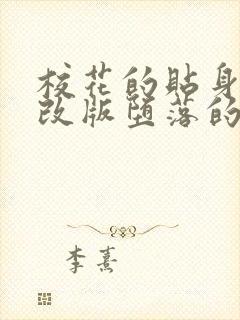 校花的贴身
改版堕落的
李熹